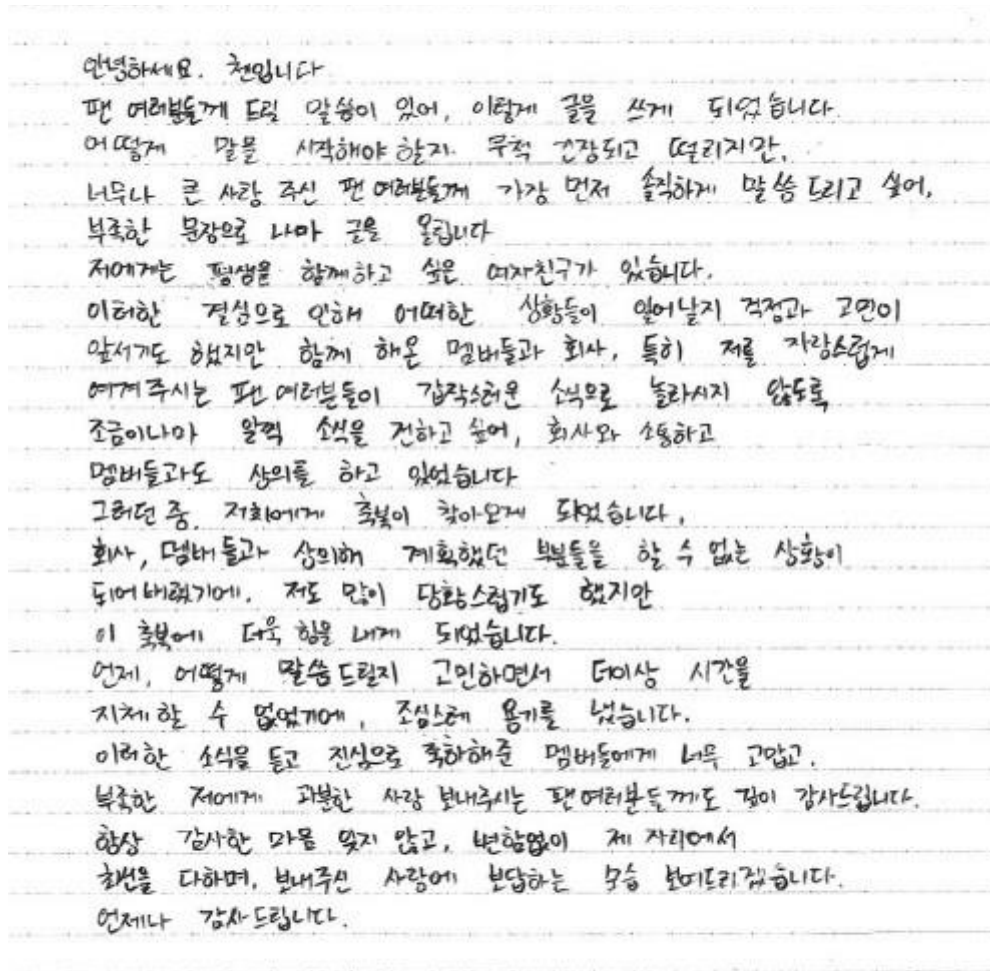 안녕하세요. 첸입니다
팬 여러분들께 드릴 말씀이 있어, 이렇게 글을 쓰게 되었습니다.
어떻게 말을 시작해야 할지. 무척 긴장되고 떨리지만,
너무나 큰 사랑 주신 팬 여러분들께 가장 먼저 솔직하게 말씀 드리고 싶어,
부족한 문장으로 나마 글을 올립니다
저에게는 평생을 함께하고 싶은 여자친구가 있습니다.
이러한 결심으로 인해 어떠한 상황들이 일어날지 걱정과 고민이
앞서기도 했지만 함께 해온 멤버들과 회사, 특히 저를 자랑스럽게
여겨주시는 팬 여러분들이 갑작스러운 소식으로 놀라시지 않도록
조금이나마 일찍 소식을 전하고 싶어, 회사와 소통하고
멤버들과도 상의를 하고 있었습니다
그러던 중. 저희에게 축복이 찾아오게 되었습니다.
회사, 멤버들과 상의해 계획했던 부분들을 할 수 없는 상황이
되어버렸기에. 저도 많이 당황스럽기도 했지만
이 축복에 더욱 힘을 내게 되었습니다.
언제, 어떻게 말씀드릴지 고민하면서 더이상 시간을
지체 할 수 없었기에, 조심스레 용기를 냈습니다.
이러한 소식을 듣고 진심으로 축하해준 멤버들에게 너무 고맙고,
부족한 저에게 과분한 사랑 보내주시는 팬여러분들께도 깊이 감사드립니다.
항상 감사한 마음 잊지 않고, 변함없이 제 자리에서
최선을 다하며, 보내주신 사랑에 보답하는 모습 보여드리겠습니다.
언제나 감사드립니다.